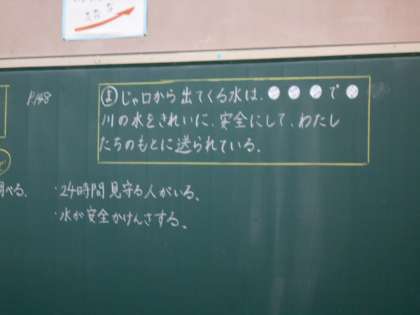 P.148
㋮じゃ口から出てくる水は、●●●で●
川の水をきれいに、安全にして、わたし
たちのもとに送られている。
べる。
・24時間見守る人がいる。
・水が安全かけんさする。